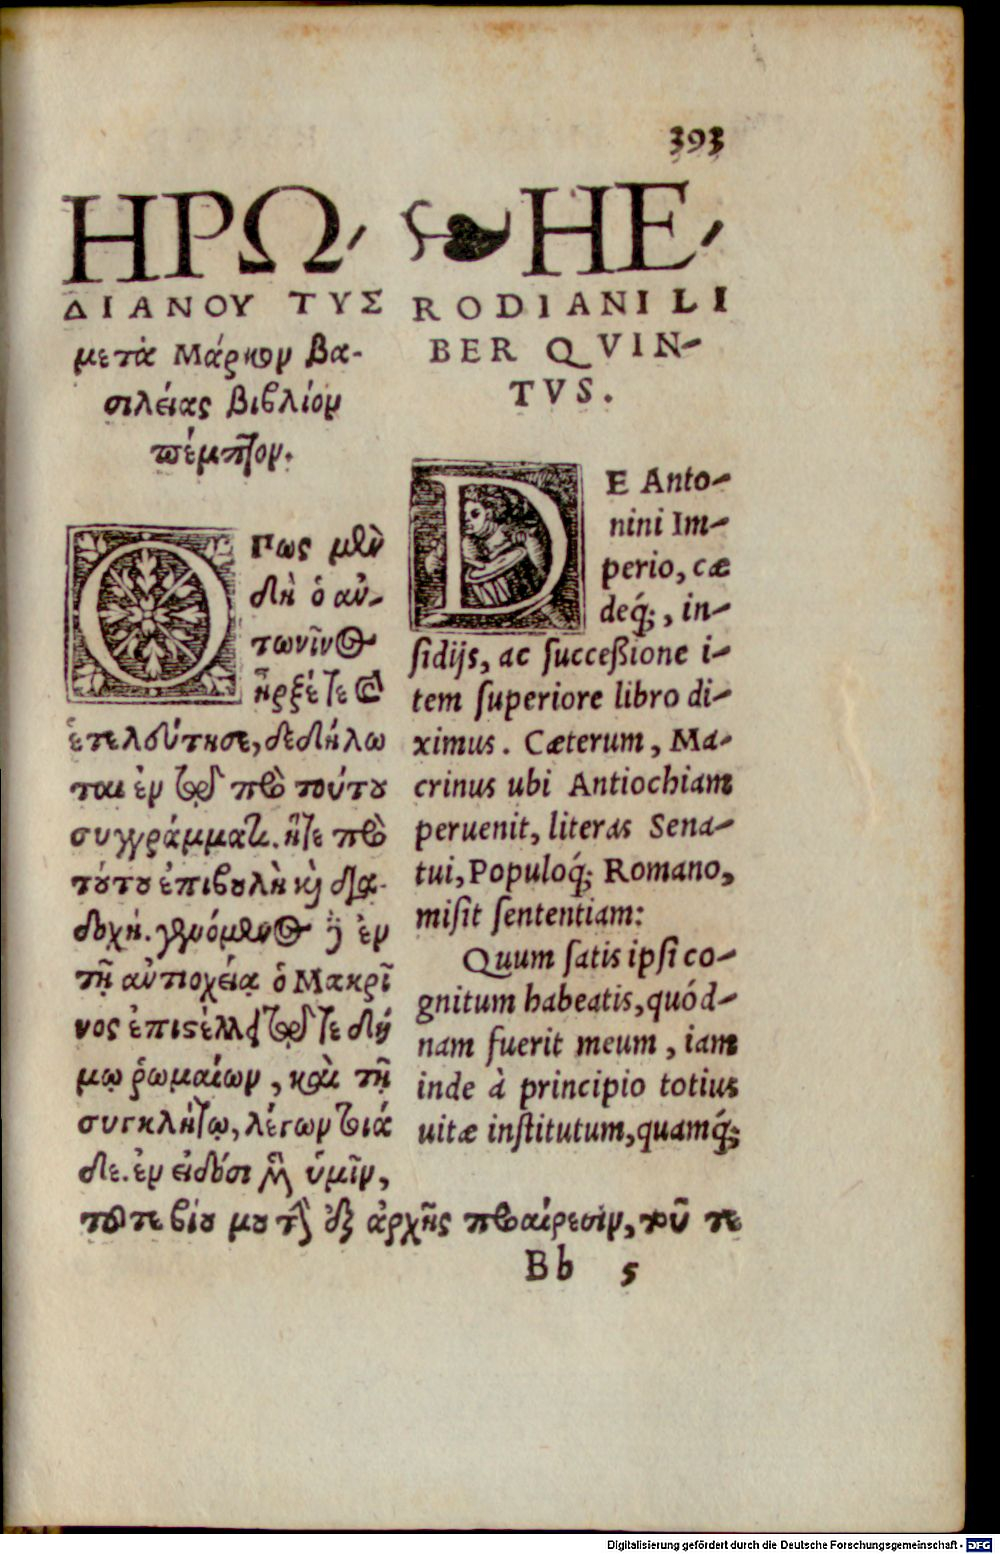 393
ΗΡΩ-
ΔΙΑΝΟΥ ΤΥΣ
μετὰ Μάρκον βα-
σιλείας βιβλίον
πέμπτον.
Οπως μὲν
δὴ ὁ ἀν-
τωνῖνος
ἦρξέ τε καὶ
ἐτελεύτησε, δεδήλω
ται ἐν τῷ πρὸ τούτου
συγγράμματι. ἥ τε πρὸ
τούτου ἐπιβουλὴ καὶ δια-
δοχή. γενόμενος δὲ ἐν
τῇ ἀντιοχείᾳ ὁ Μακρῖ
νος ἐπιστέλλει τῷ τε δή
μῳ ῥωμαίων, καὶ τῇ
συγκλήτῳ, λέγων τοιά
δε. ἐν εἰδόσι μὲν ὑμῖν,
τοῦ τε βίου μου τὴν ἐξ ἀρχῆς προαίρεσιν, τοῦ τε
HE-
RODIANI LI
BER QVIN-
TVS.
DE Anto-
nini Im-
perio, cæ
deq́;, in-
ſidijs, ac ſucceßione i-
tem ſuperiore libro di-
ximus. Cæterum, Ma-
crinus ubi Antiochiam
peruenit, literas Sena-
tui, Populoq́; Romano,
miſit ſententiam:
Quum ſatis ipſi co-
gnitum habeatis, quód-
nam fuerit meum, iam
inde à principio totius
uitæ inſtitutum, quamq́;
Bb 5
Digitalisierung gefördert durch die Deutsche Forschungsgemeinschaft - DFG